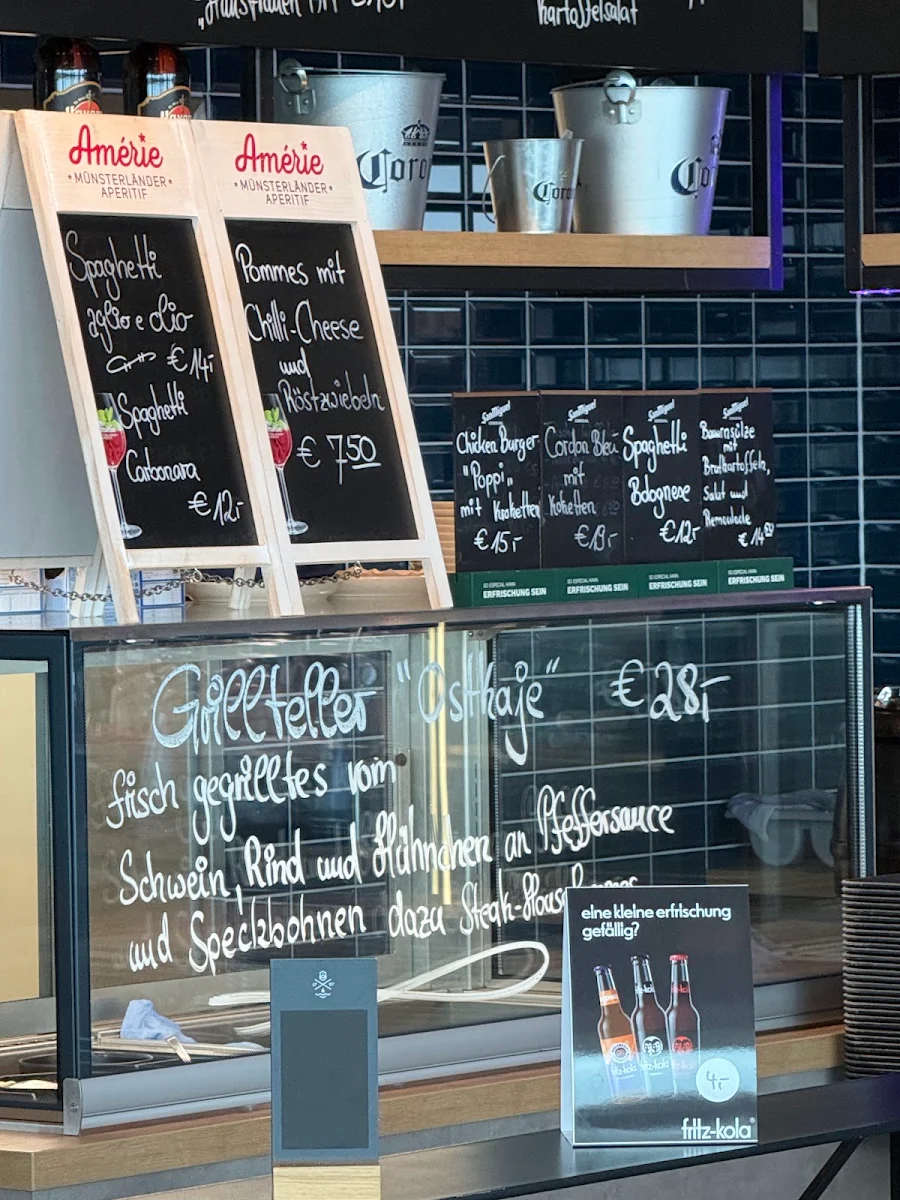 Kartoffelsalat
Corona
Amérie
MÜNSTERLÄNDER
APERITIF
Spaghetti
aglio e olio
€ 14,-
Spaghetti
Carbonara
€ 12,-
Amérie
MÜNSTERLÄNDER
APERITIF
Pommes mit
Chilli-Cheese
und
Röstzwiebeln
€ 7,50
San Miguel
Chicken Burger
"Poppi"
mit Kroketten
€ 15,-
ERFRISCHUNG SEIN
San Miguel
Cordon Bleu
mit
Koketten
€ 19,-
ERFRISCHUNG SEIN
San Miguel
Spaghetti
Bolognese
€ 12,-
ERFRISCHUNG SEIN
San Miguel
Bauernsülze
mit
Bratkartoffeln,
Salat und
Remoulade
€ 14,50
ERFRISCHUNG SEIN
Grillteller "Osthaje" € 28,-
frisch gegrilltes vom
Schwein, Rind und Hühnchen an Pfeffersauce
und Speckbohnen dazu
eine kleine erfrischung
gefällig?
4,-
fritz-kola